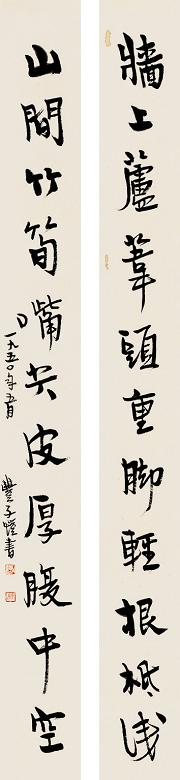 牆上蘆葦頭重脚輕根柢浅
山間竹筍嘴尖皮厚腹中空
一九五〇年五月
豐子愷書